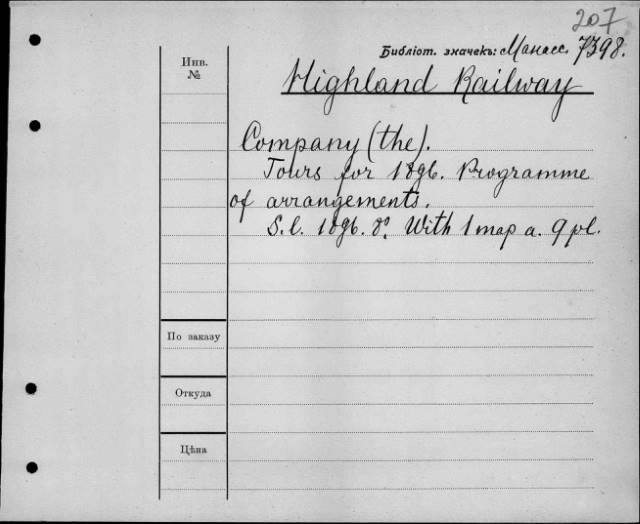 207
Библіот. значекъ: Манасс. 7398.
Инв.
№
Highland Railway
Company (the).
Tours for 1896. Programme
of arrangements.
S. l. 1896. 8º. With 1 map a. 9 pl.
По заказу
Откуда
Цѣна